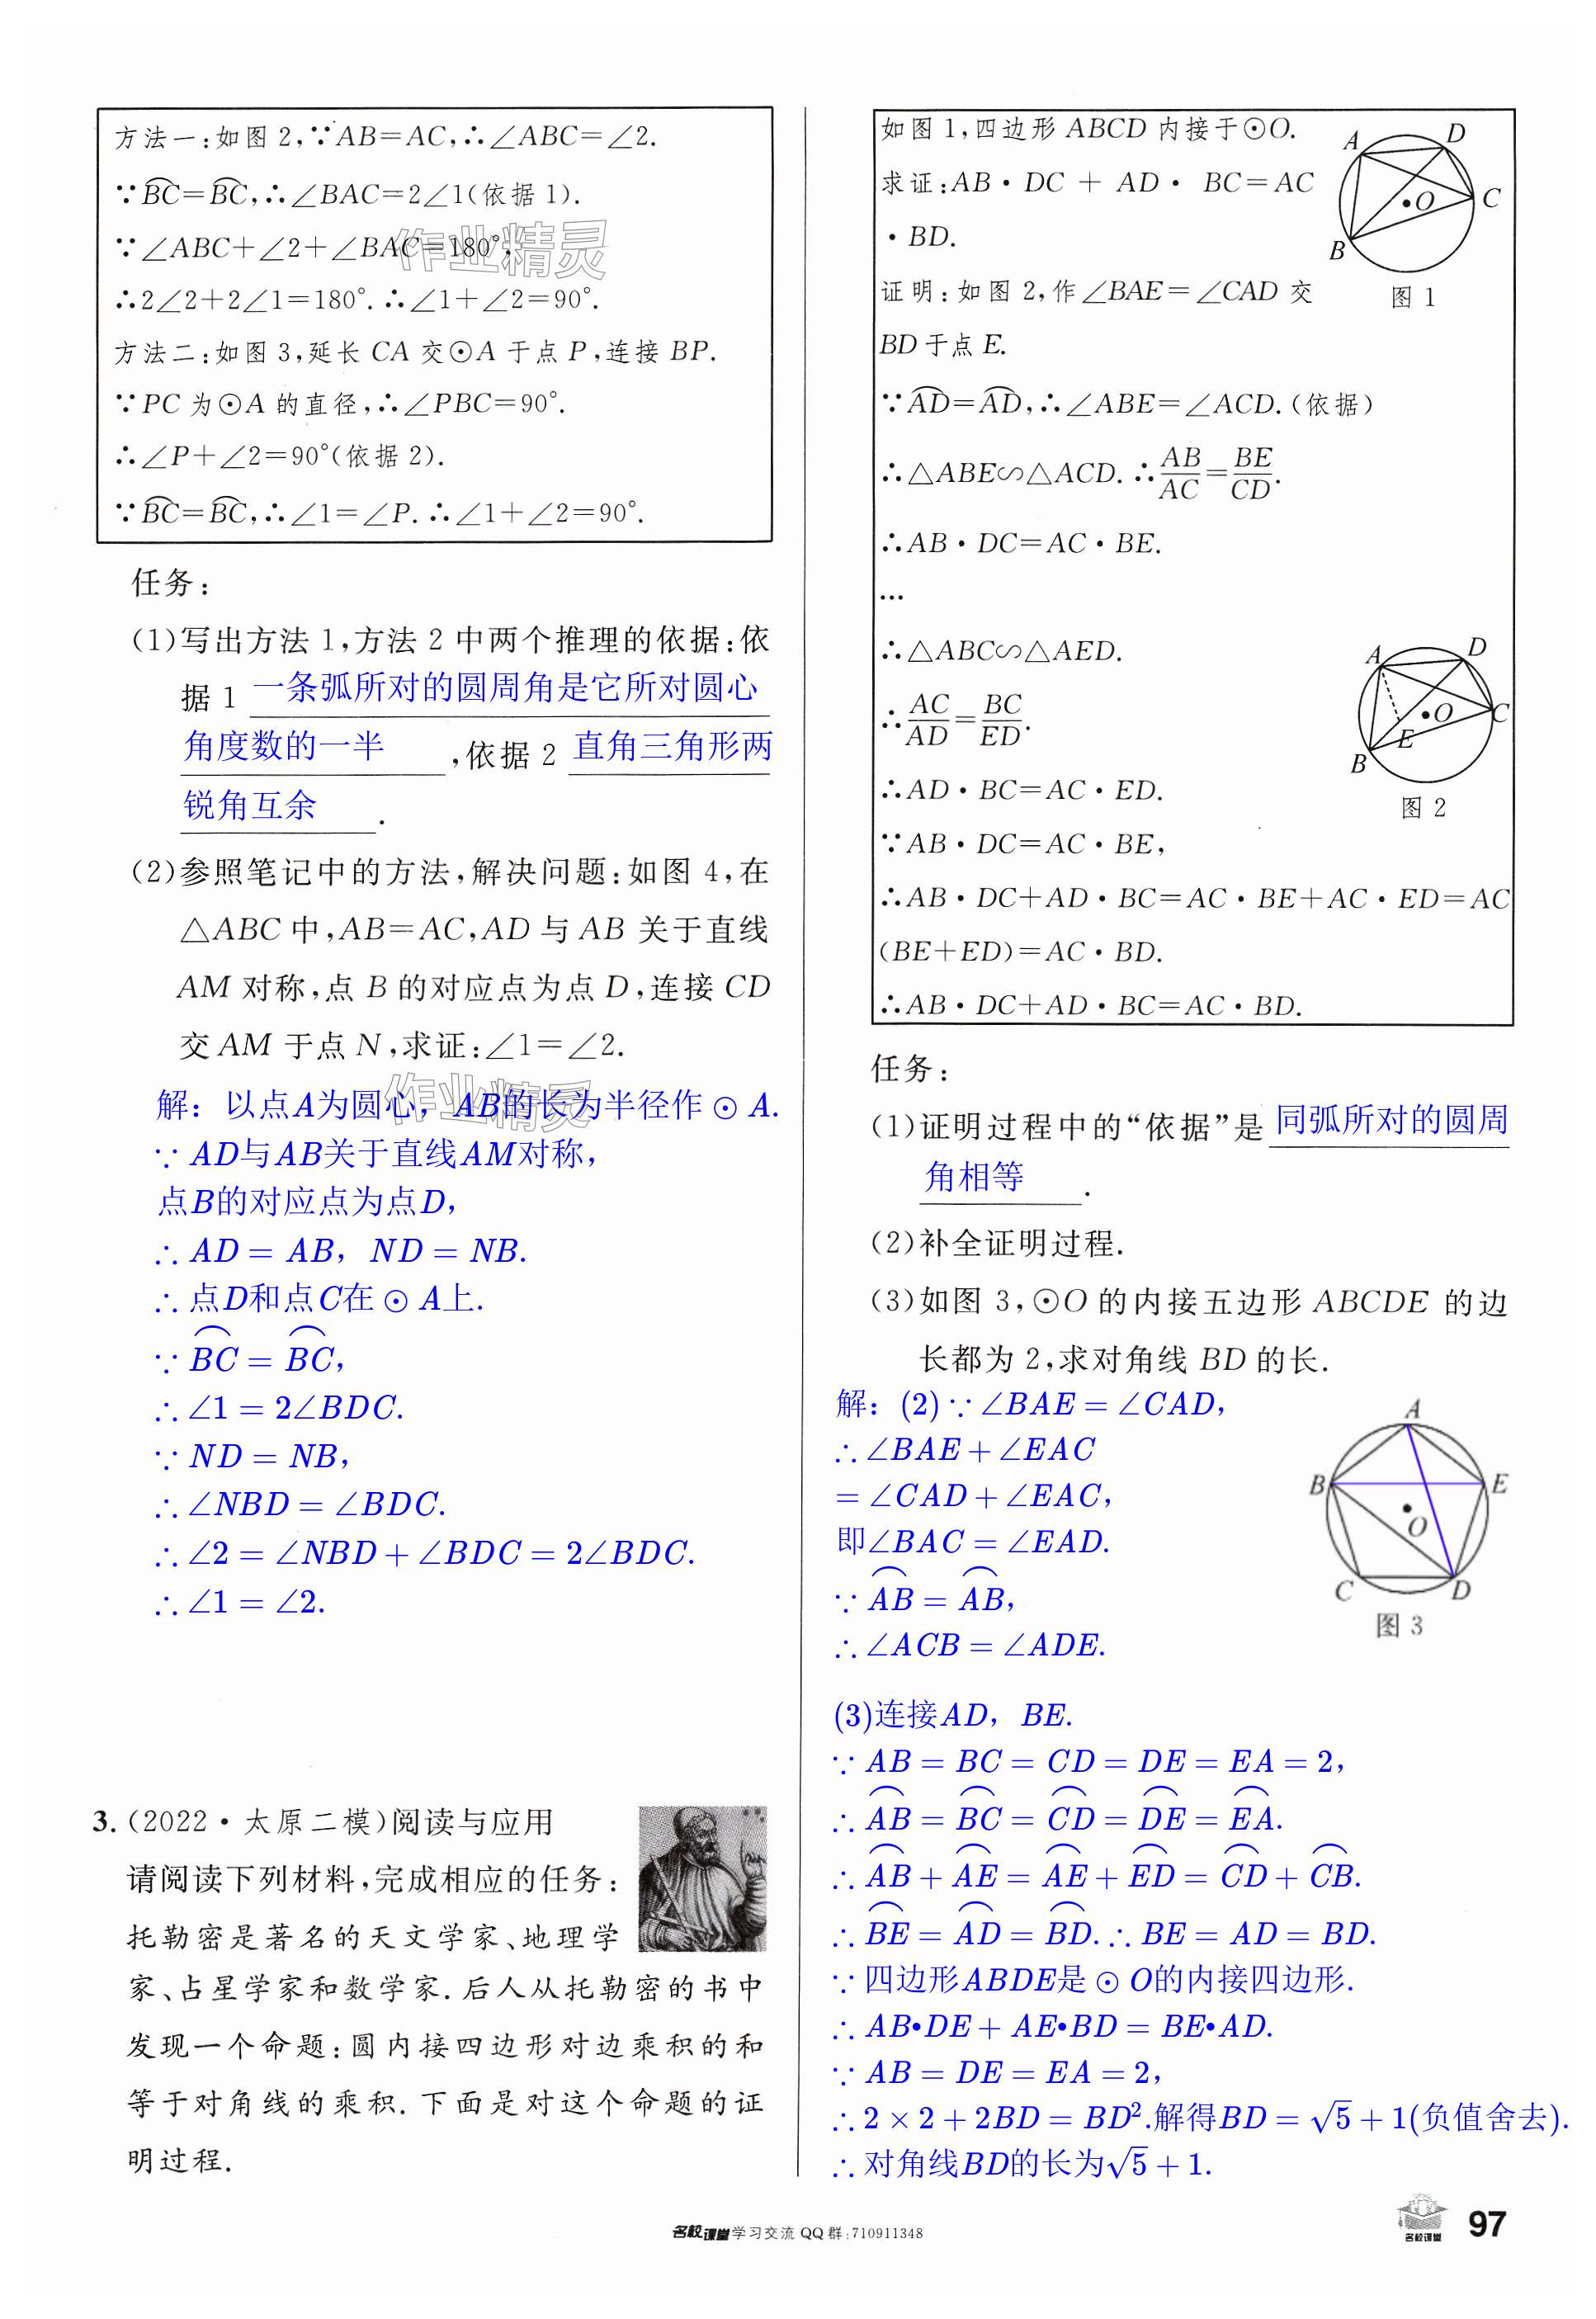 方法一:如图 2,∵AB=AC,∴∠ABC=∠2.
∵BC=BC,∴∠BAC=2∠1(依据 1).
∵∠ABC+∠2+∠BAC=180°,
∴2∠2+2∠1=180°.∴∠1+∠2=90°.
方法二:如图 3,延长 CA 交⊙A 于点 P,连接 BP.
∵PC 为⊙A 的直径,∴∠PBC=90°.
∴∠P+∠2=90°(依据 2).
∵BC=BC,∴∠1=∠P.∴∠1+∠2=90°.
作业精灵
任务:
(1)写出方法 1,方法 2 中两个推理的依据:依
据 1 一条弧所对的圆周角是它所对圆心
角度数的一半,依据 2 直角三角形两
锐角互余.
(2)参照笔记中的方法,解决问题:如图 4,在
△ABC 中,AB=AC,AD 与 AB 关于直线
AM 对称,点 B 的对应点为点 D,连接 CD
交 AM 于点 N,求证:∠1=∠2.
作业精灵
解:以点A为圆心,AB的长为半径作⊙A.
∵AD与AB关于直线AM对称,
点B的对应点为点D,
∴AD=AB,ND=NB.
∴点D和点C在⊙A上.
∵BC=BC,
∴∠1=2∠BDC.
∵ND=NB,
∴∠NBD=∠BDC.
∴∠2=∠NBD+∠BDC=2∠BDC.
∴∠1=∠2.
3.(2022·太原二模)阅读与应用
请阅读下列材料,完成相应的任务:
托勒密是著名的天文学家、地理学
家、占星学家和数学家.后人从托勒密的书中
发现一个命题:圆内接四边形对边乘积的和
等于对角线的乘积.下面是对这个命题的证
明过程.
如图 1,四边形 ABCD 内接于⊙O.
求证:AB·DC+AD·BC=AC
·BD.
A
D
O
C
B
图 1
证明:如图 2,作∠BAE=∠CAD 交
BD 于点 E.
∵AD=AD,∴∠ABE=∠ACD.(依据)
∴△ABE∽△ACD.∴AB/AC=BE/CD.
∴AB·DC=AC·BE.
…
∴△ABC∽△AED.
∴AC/AD=BC/ED.
A
D
O
C
E
B
图 2
∴AD·BC=AC·ED.
∵AB·DC=AC·BE,
∴AB·DC+AD·BC=AC·BE+AC·ED=AC
(BE+ED)=AC·BD.
∴AB·DC+AD·BC=AC·BD.
任务:
(1)证明过程中的“依据”是 同弧所对的圆周
角相等.
(2)补全证明过程.
(3)如图 3,⊙O 的内接五边形 ABCDE 的边
长都为 2,求对角线 BD 的长.
解:(2)∵∠BAE=∠CAD,
∴∠BAE+∠EAC
=∠CAD+∠EAC,
即∠BAC=∠EAD.
∵AB=AB,
∴∠ACB=∠ADE.
A
B
E
O
C
D
图 3
(3)连接AD,BE.
∵AB=BC=CD=DE=EA=2,
∴AB=BC=CD=DE=EA.
∴AB+AE=AE+ED=CD+CB.
∴BE=AD=BD.∴BE=AD=BD.
∵四边形ABDE是⊙O的内接四边形.
∴AB•DE+AE•BD=BE•AD.
∵AB=DE=EA=2,
∴2×2+2BD=BD².解得BD=√5+1(负值舍去).
∴对角线BD的长为√5+1.
名校课堂学习交流 QQ 群:710911348
名校课堂
97